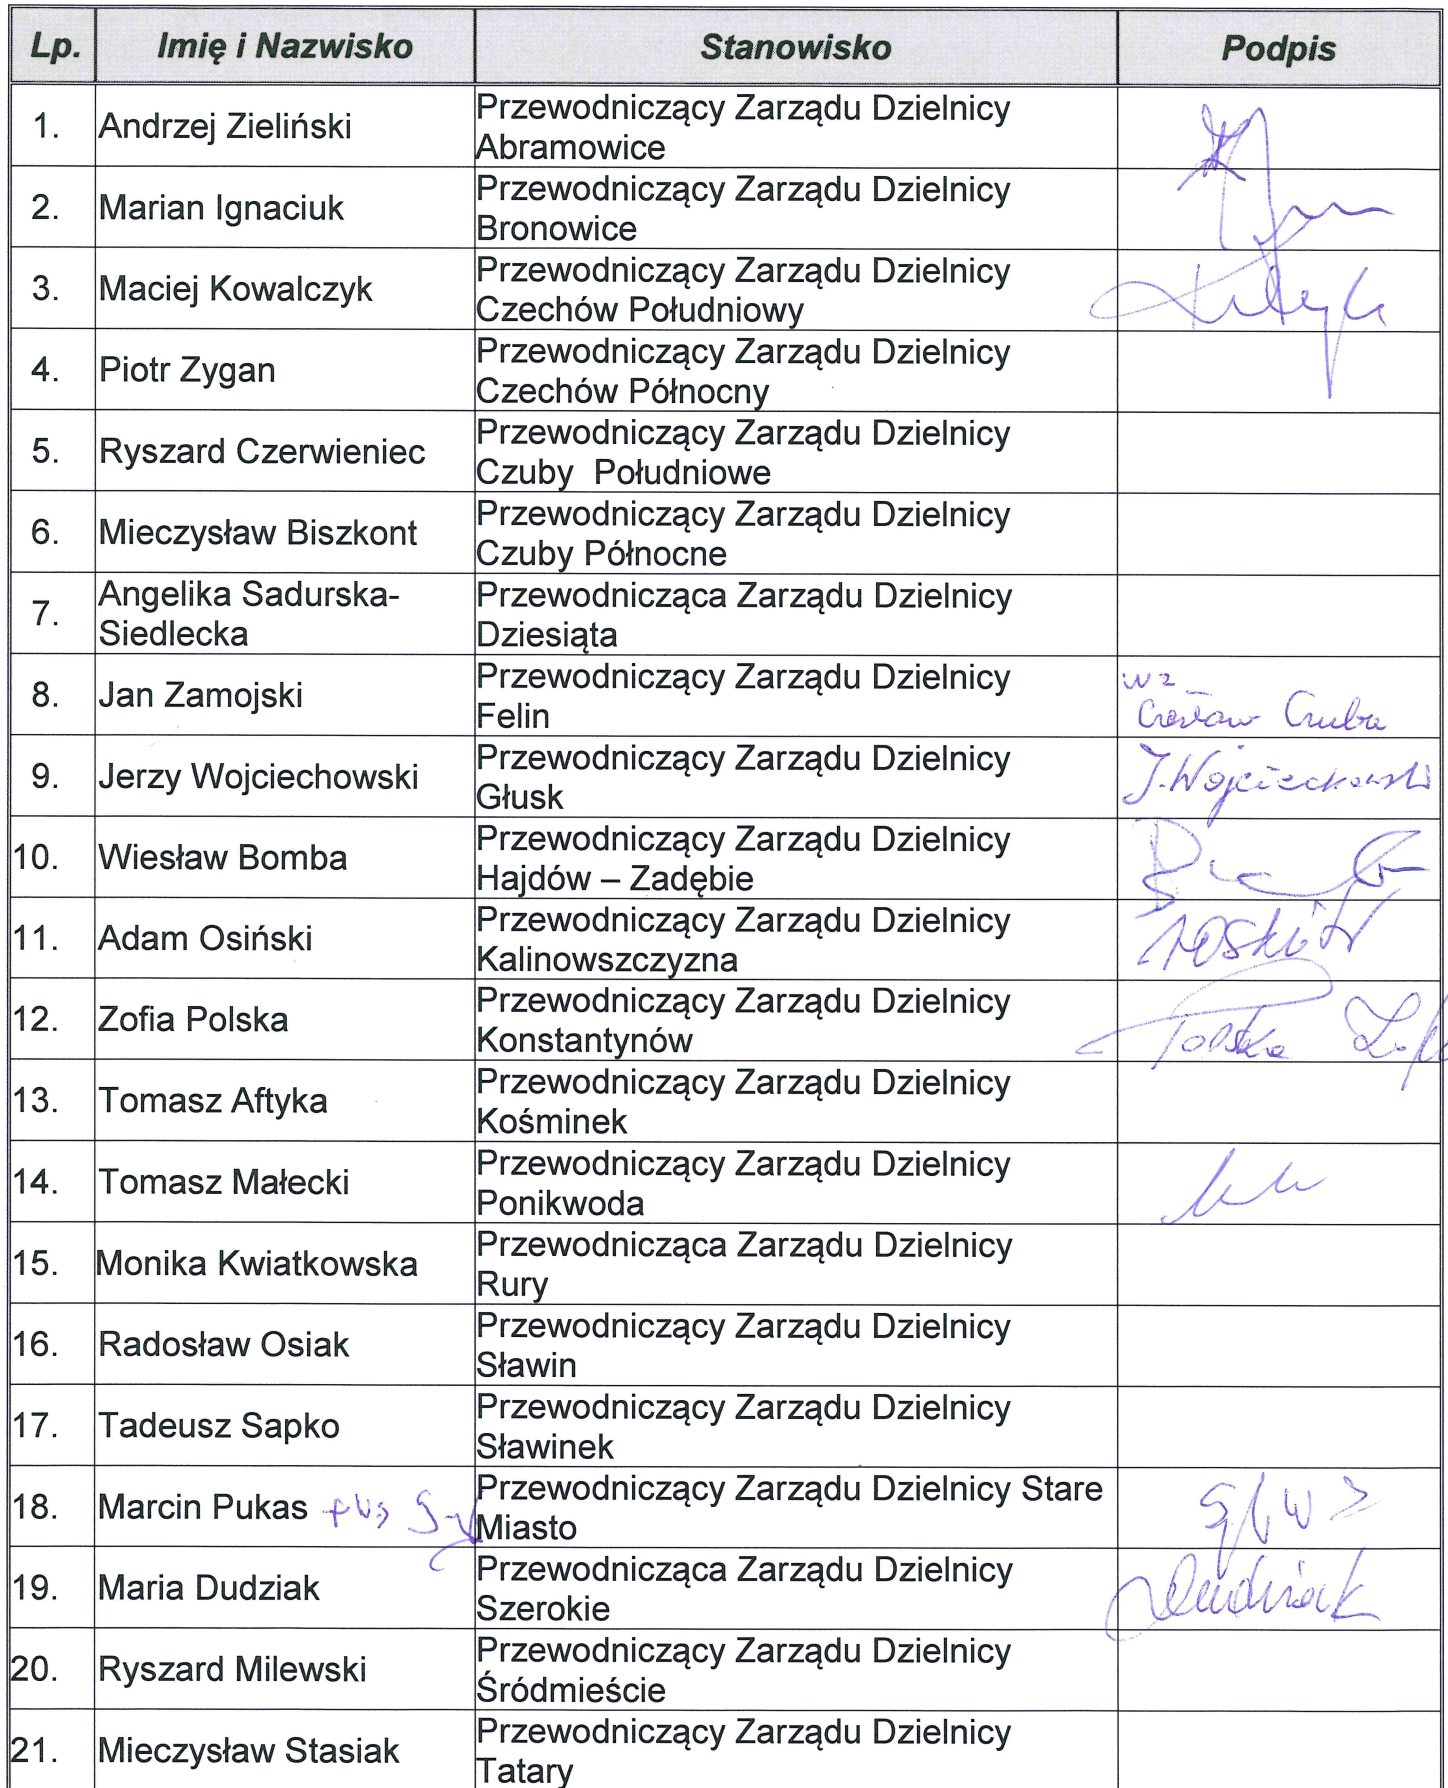 Lp. Imię i Nazwisko Stanowisko Podpis
1. Andrzej Zieliński Przewodniczący Zarządu Dzielnicy
Abramowice
2. Marian Ignaciuk Przewodniczący Zarządu Dzielnicy
Bronowice
3. Maciej Kowalczyk Przewodniczący Zarządu Dzielnicy
Czechów Południowy
4. Piotr Zygan Przewodniczący Zarządu Dzielnicy
Czechów Północny
5. Ryszard Czerwieniec Przewodniczący Zarządu Dzielnicy
Czuby Południowe
6. Mieczysław Biszkont Przewodniczący Zarządu Dzielnicy
Czuby Północne
7. Angelika Sadurska- Przewodnicząca Zarządu Dzielnicy
Siedlecka Dziesiąta
8. Jan Zamojski Przewodniczący Zarządu Dzielnicy wz
Felin Czesław Czuba
9. Jerzy Wojciechowski Przewodniczący Zarządu Dzielnicy J. Wojciechowski
Głusk
10. Wiesław Bomba Przewodniczący Zarządu Dzielnicy
Hajdów – Zadębie
11. Adam Osiński Przewodniczący Zarządu Dzielnicy
Kalinowszczyzna
12. Zofia Polska Przewodniczący Zarządu Dzielnicy
Konstantynów Polska
13. Tomasz Aftyka Przewodniczący Zarządu Dzielnicy
Kośminek
14. Tomasz Małecki Przewodniczący Zarządu Dzielnicy
Ponikwoda
15. Monika Kwiatkowska Przewodnicząca Zarządu Dzielnicy
Rury
16. Radosław Osiak Przewodniczący Zarządu Dzielnicy
Sławin
17. Tadeusz Sapko Przewodniczący Zarządu Dzielnicy
Sławinek
18. Marcin Pukas Przewodniczący Zarządu Dzielnicy Stare
Miasto
19. Maria Dudziak Przewodnicząca Zarządu Dzielnicy Dudziak
Szerokie
20. Ryszard Milewski Przewodniczący Zarządu Dzielnicy
Śródmieście
21. Mieczysław Stasiak Przewodniczący Zarządu Dzielnicy
Tatary